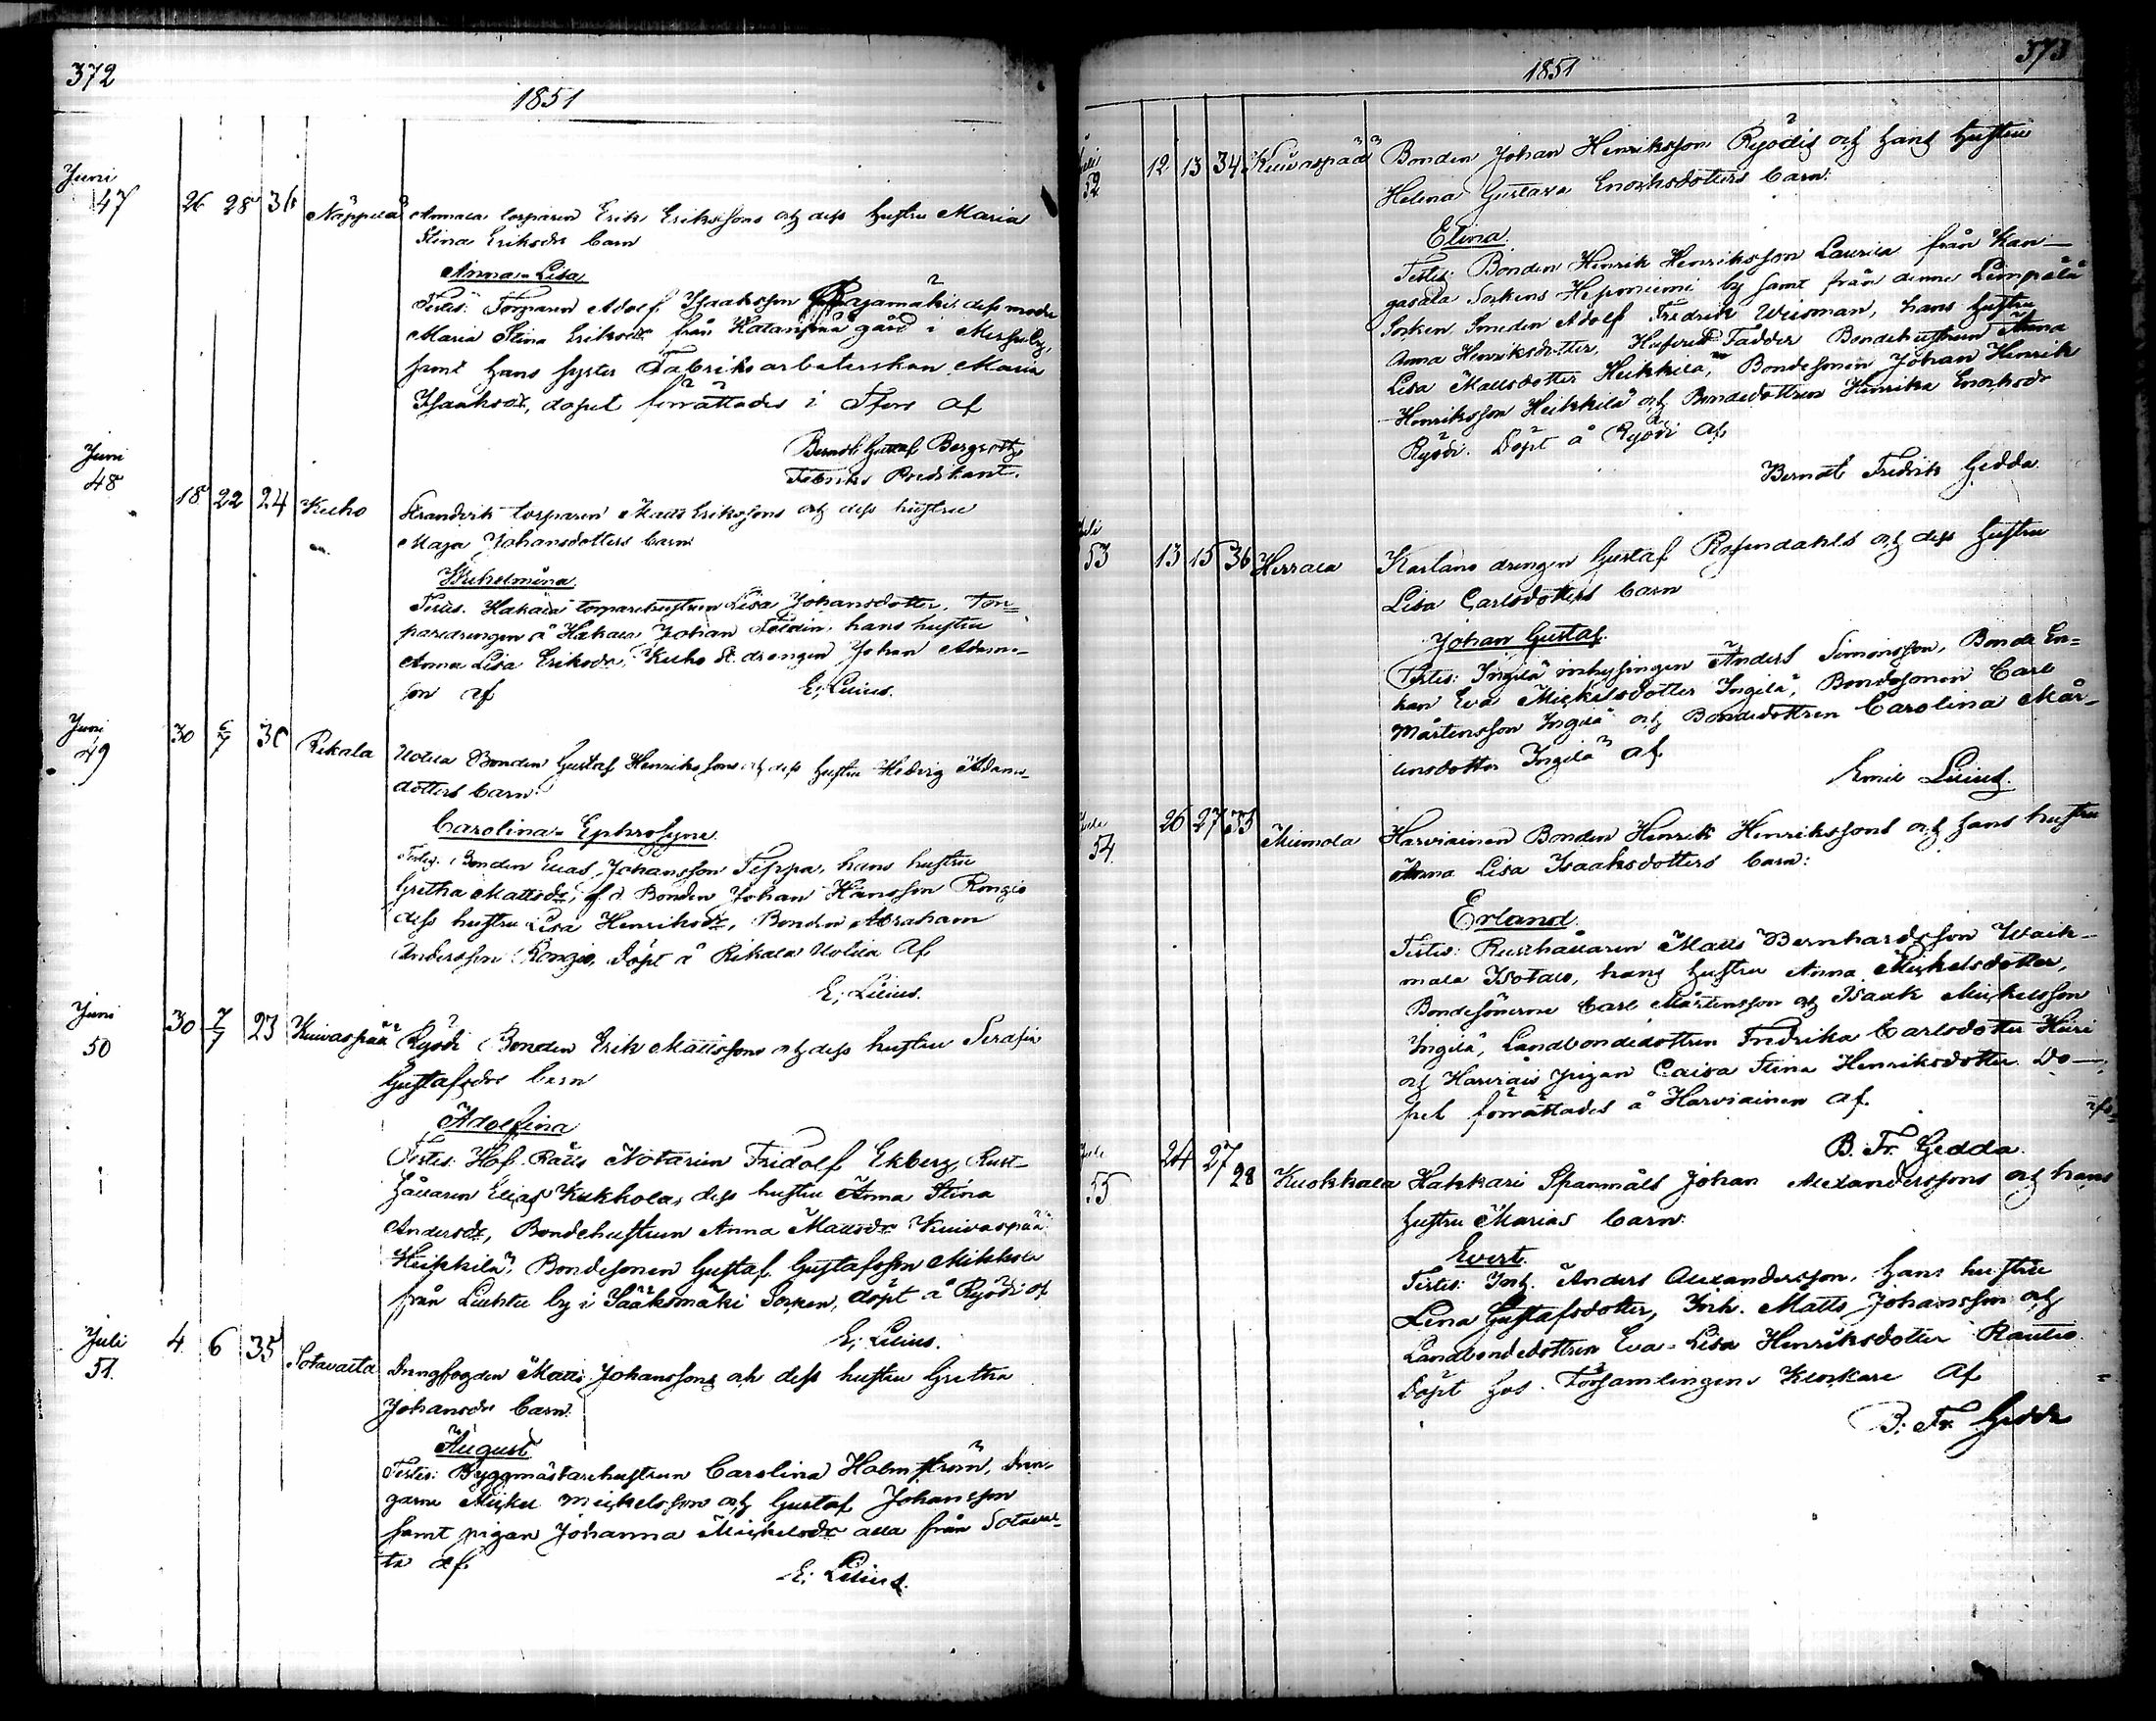 372
1851
Juni
47 26 28 36 Näppilä Annala torparen Erik Erikssons och dess hustru Maria
Stina Eriksdr barn
Anna-Lisa
Testes: Torparen Adolf Isaaksson Rajamäki dess moder
Maria Stina Eriksdr från Hatanpää gård i Messuby,
samt hans syster Fabriksarbeterskan Maria
Isaaksdr, dopet förrättades i Tfors af
Berndt Gustaf Bergroth,
Fabriks Predikant.
Juni
48 18 22 24 Kuho Strandvik torparen Matts Erikssons och dess hustru
Maja Johansdotters barn
Wilhelmina
Testes. Hakala torparehustrun Lisa Johansdotter, Tor=
paredrengen å Hakala Johan hans hustru
Anna Lisa Eriksdr, Kuho St. drengen Johan Adams-
son af E; Lilius.
Juni
49 30 6/7 30 Rikala Uotila Bonden Gustaf Henrikssons och dess hustru Hedvig Adams-
dotters barn:
Carolina-Ephrosyne
Testes. Bonden Elias Johansson Seppä, hans hustru
Gretha Mattsdr, f.d. Bonden Johan Hansson Rongio
dess hustru Lisa Henriksdr, Bonden Abraham
Andersson Rongio, döpt å Rikala Uotila af
E; Lilius.
Juni
50 30 7/7 23 Kuivaspää Ryödi Bonden Erik Mattssons och dess hustru Serafia
Gustafsdrs barn
Adolfina
Testes: Hof Rätts Notarien Fridolf Ekberg, Rust-
hållaren Elias Kukkola, dess hustru Anna Stina
Andersdr, Bondehustrun Anna Mattsdr Kuivaspää
Heikkilä, Bondesonen Gustaf Gustafsson Mikkola
från Luhtu by i Sääksmäki Socken, döpt å Ryödi af
E; Lilius.
Juli
51. 4 6 35 Sotavalta Drengfogden Matts Johanssons och dess hustru Gretha
Johansdrs barn.
August
Testes: Byggmästarehustrun Carolina Holmström, dren-
garne Mickel Mickelsson och Gustaf Johansson
samt pigan Johanna Mickelsdr alla från Sotaval-
ta af
E; Lilius.
373
1851
Juli
52 12 13 34 Kuivaspää Bonden Johan Henriksson Ryödis och hans hustru
Helena Gustava Enochsdotters barn.
Elina
Testes: Bonden Henrik Henriksson Laurila från Kan-
gasala Sockens Heponiemi by samt från denna Lempälä
Socken, Smeden Adolf Fredrik Weisman, hans hustru
Anna Henriksdotter, Hufvud Fadder Bondehustrun Anna
Lisa Mattsdotter Heikkilä, Bondesonen Johan Henrik
Henriksson Heikkilä och Bondedottren Henrika Enochsdr
Ryödi. Döpt å Ryödi af
Berndt Fredrik Gedda
Juli
53 13 15 36 Herrala Karlano drengen Gustaf Rosendahls och dess hustru
Lisa Carlsdotters barn
Johan Gustaf
Testes: Ingilä inhysingen Anders Simonsson, Bonde En=
kan Eva Mickelsdotter Ingilä, Bondesonen Carl
Mårtensson Ingilä och Bondedottren Carolina Mår-
tensdotter Ingilä af
Emil Lilius.
Juli
54. 26 27 33 Miemola Harviainen Bonden Henrik Henrikssons och hans hustru
Anna Lisa Isaaksdotters barn:
Erland
Testes: Rusthållaren Matts Bernhardsson Waik-
mala Isotalo, hans hustru Anna Mickelsdotter,
Bondesönerne Carl Mårtensson och Isaak Mickelsson
Ingilä, Landbondedottren Fredrika Carlsdotter Huri
och Harviais pigan Caisa Stina Henriksdotter. Do-
pet förrättades å Harviainen af
B. Fr. Gedda.
Juli
55 24 27 28 Kuokkala Hakkari Spanmåls Johan Alexanderssons och hans
hustru Marias barn.
Evert.
Testes: Inh. Anders Alexandersson, hans hustru
Lena Gustafsdotter, Inh. Matts Johansson och
Landbondedottren Eva-Lisa Henriksdotter Rautio
Döpt hos Församlingens Klockare af
B. Fr. Gedda